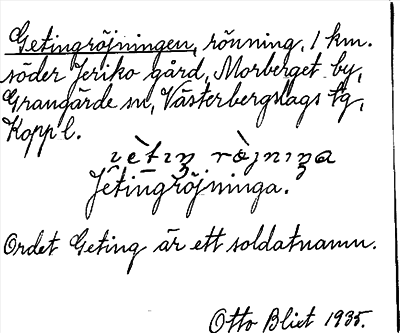 Getingröjningen, rönning, 1 km.
söder Jeriko gård, Morberget by,
Grangärde sn, Västerbergslags tg,
Koppl.
Jetingröjninga.
Ordet Geting är ett soldatnamn.
Otto Blixt 1935.